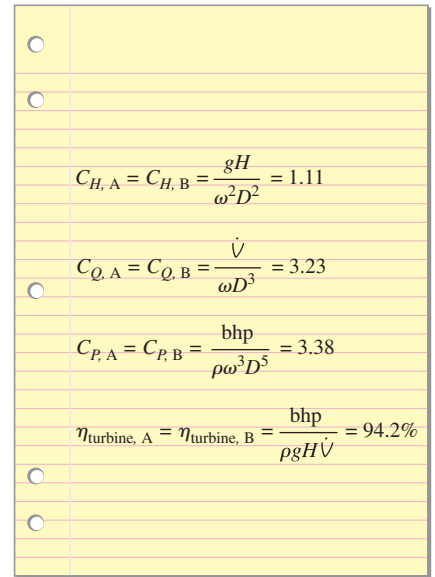 C_{H, A} = C_{H, B} = \frac{gH}{ω^2 D^2} = 1.11
C_{Q, A} = C_{Q, B} = \frac{\dot{V}}{ωD^3} = 3.23
C_{P, A} = C_{P, B} = \frac{bhp}{ρω^3 D^5} = 3.38
η_{turbine, A} = η_{turbine, B} = \frac{bhp}{ρgH\dot{V}} = 94.2%